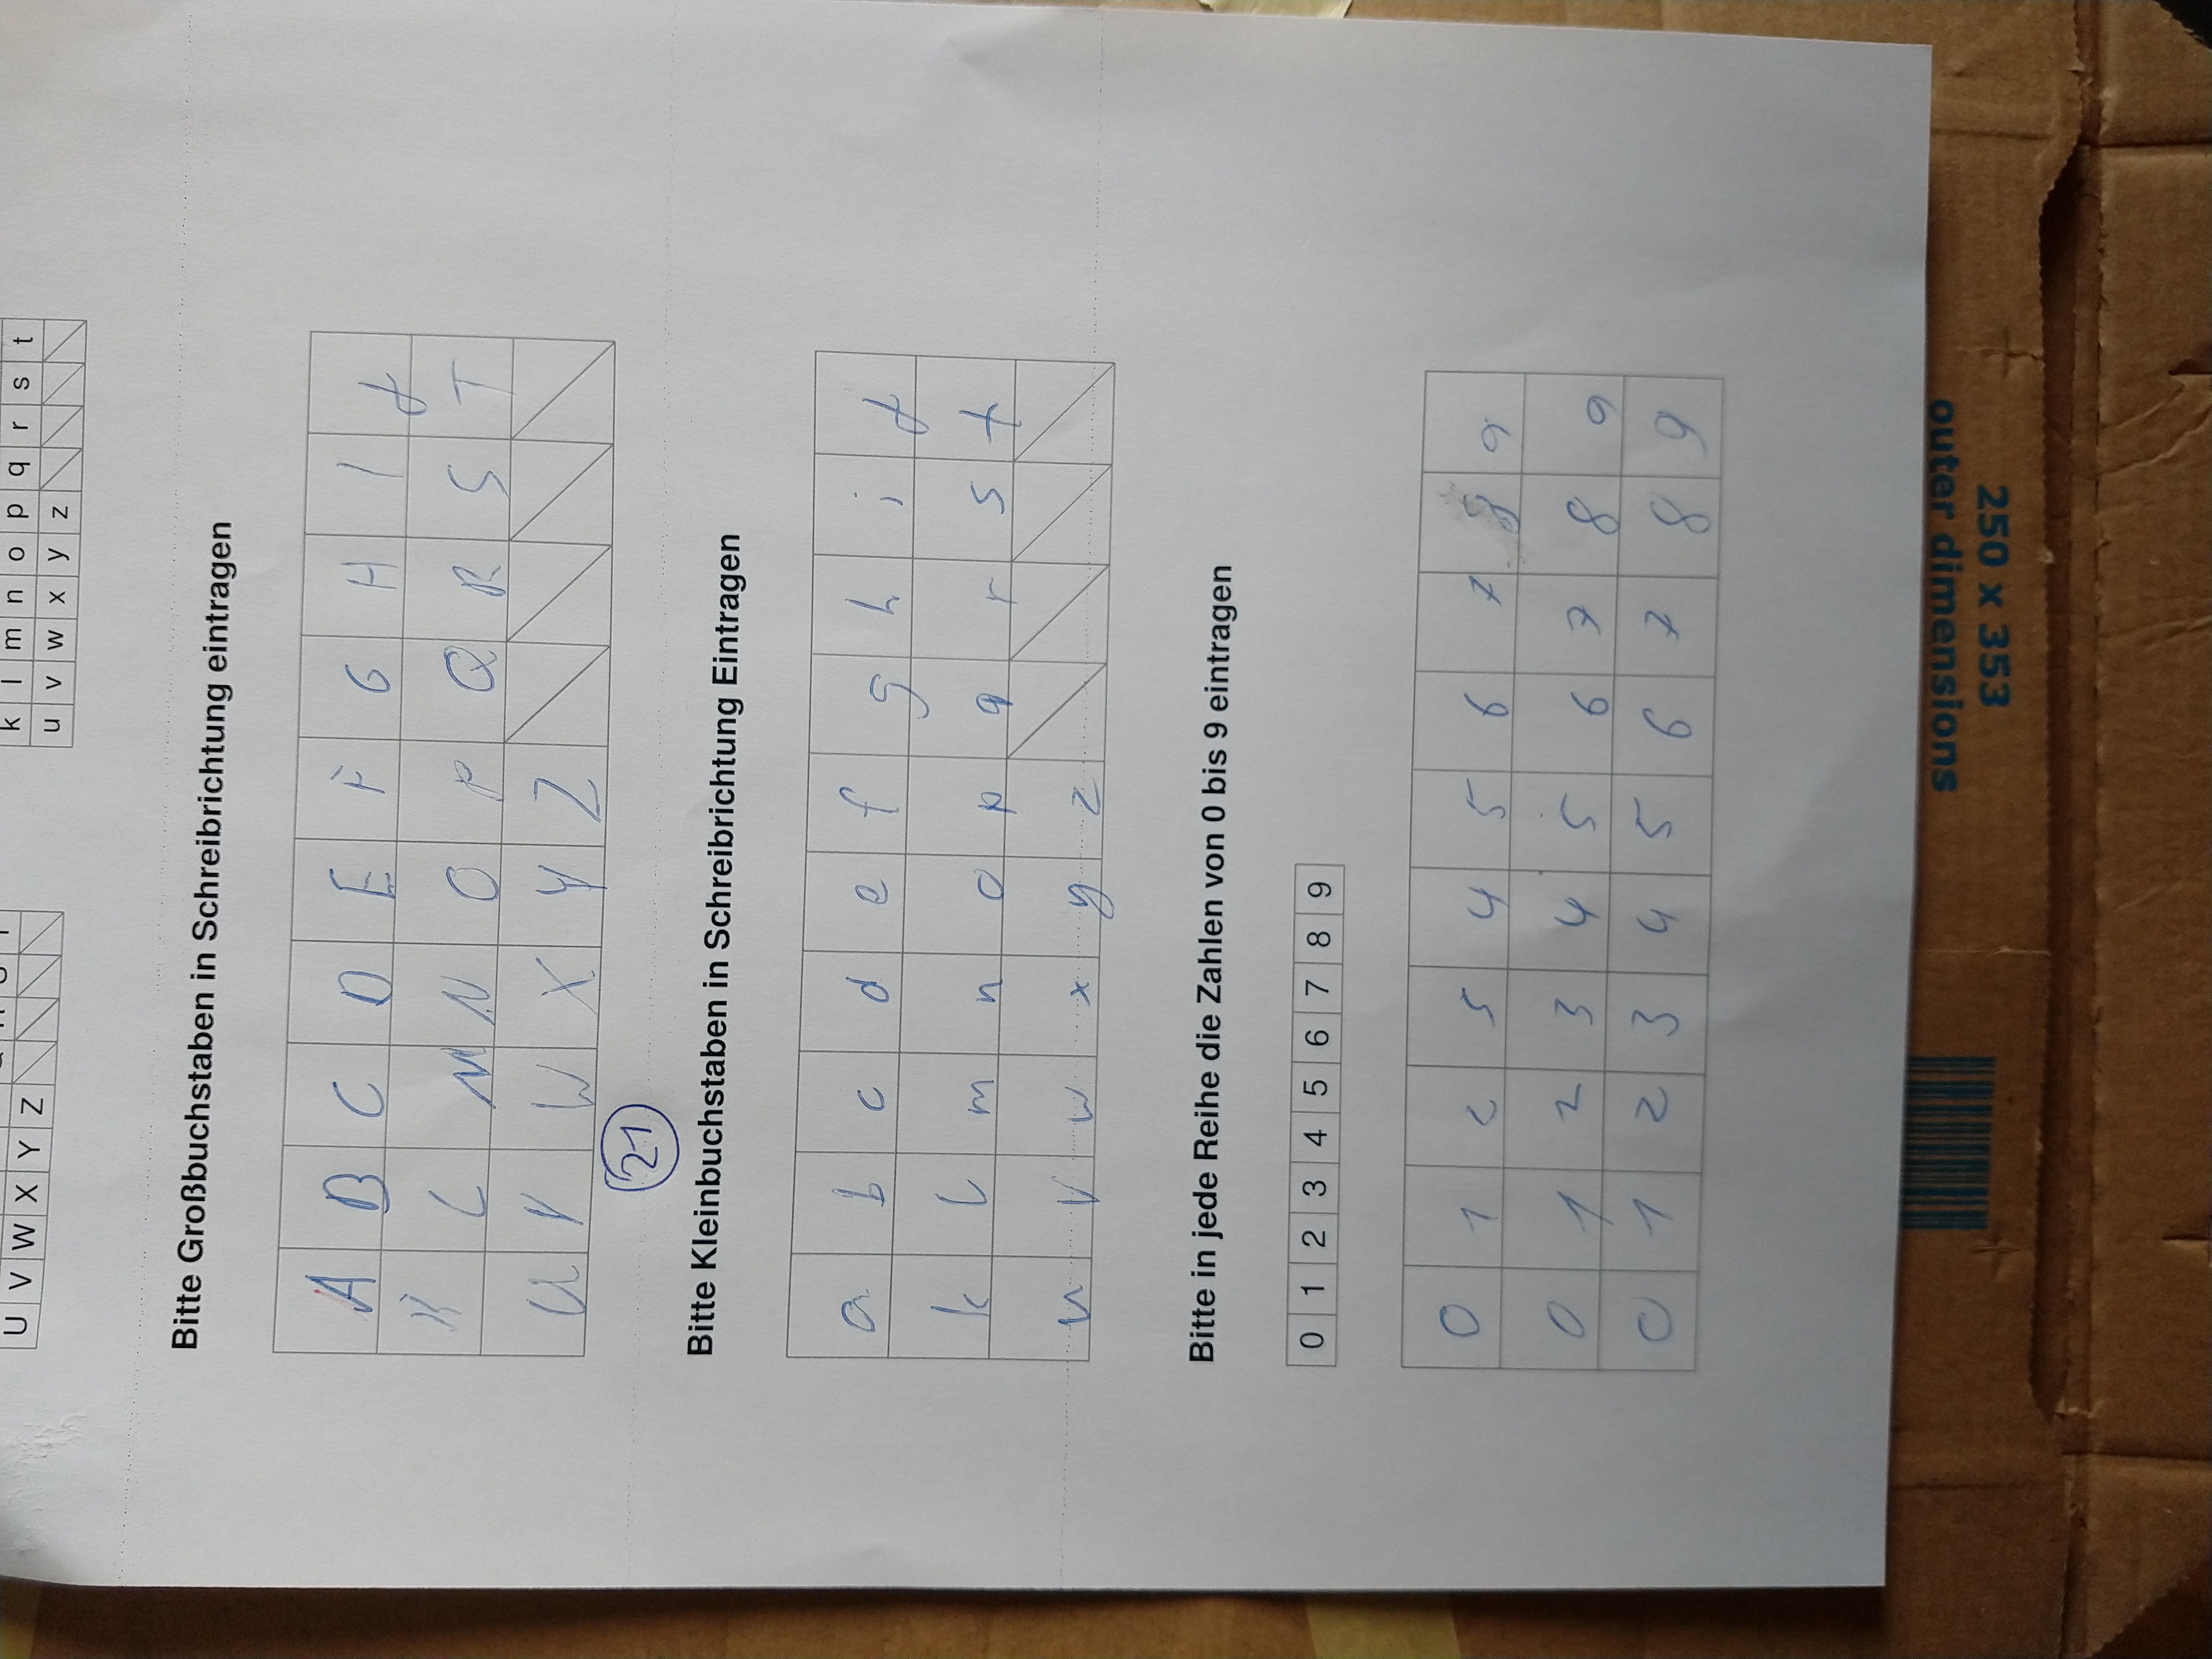 U V W X Y Z
k l m n o p q r s t
u v w x y z
Bitte Großbuchstaben in Schreibrichtung eintragen
A B C D E F G H I J
K L M N O P Q R S T
U V W X Y Z
21
Bitte Kleinbuchstaben in Schreibrichtung Eintragen
a b c d e f g h i j
k l m n o p q r s t
u v w x y z
Bitte in jede Reihe die Zahlen von 0 bis 9 eintragen
0 1 2 3 4 5 6 7 8 9
0 1 2 3 4 5 6 7 8 9
0 1 2 3 4 5 6 7 8 9
0 1 2 3 4 5 6 7 8 9
outer dimensions
250 x 353